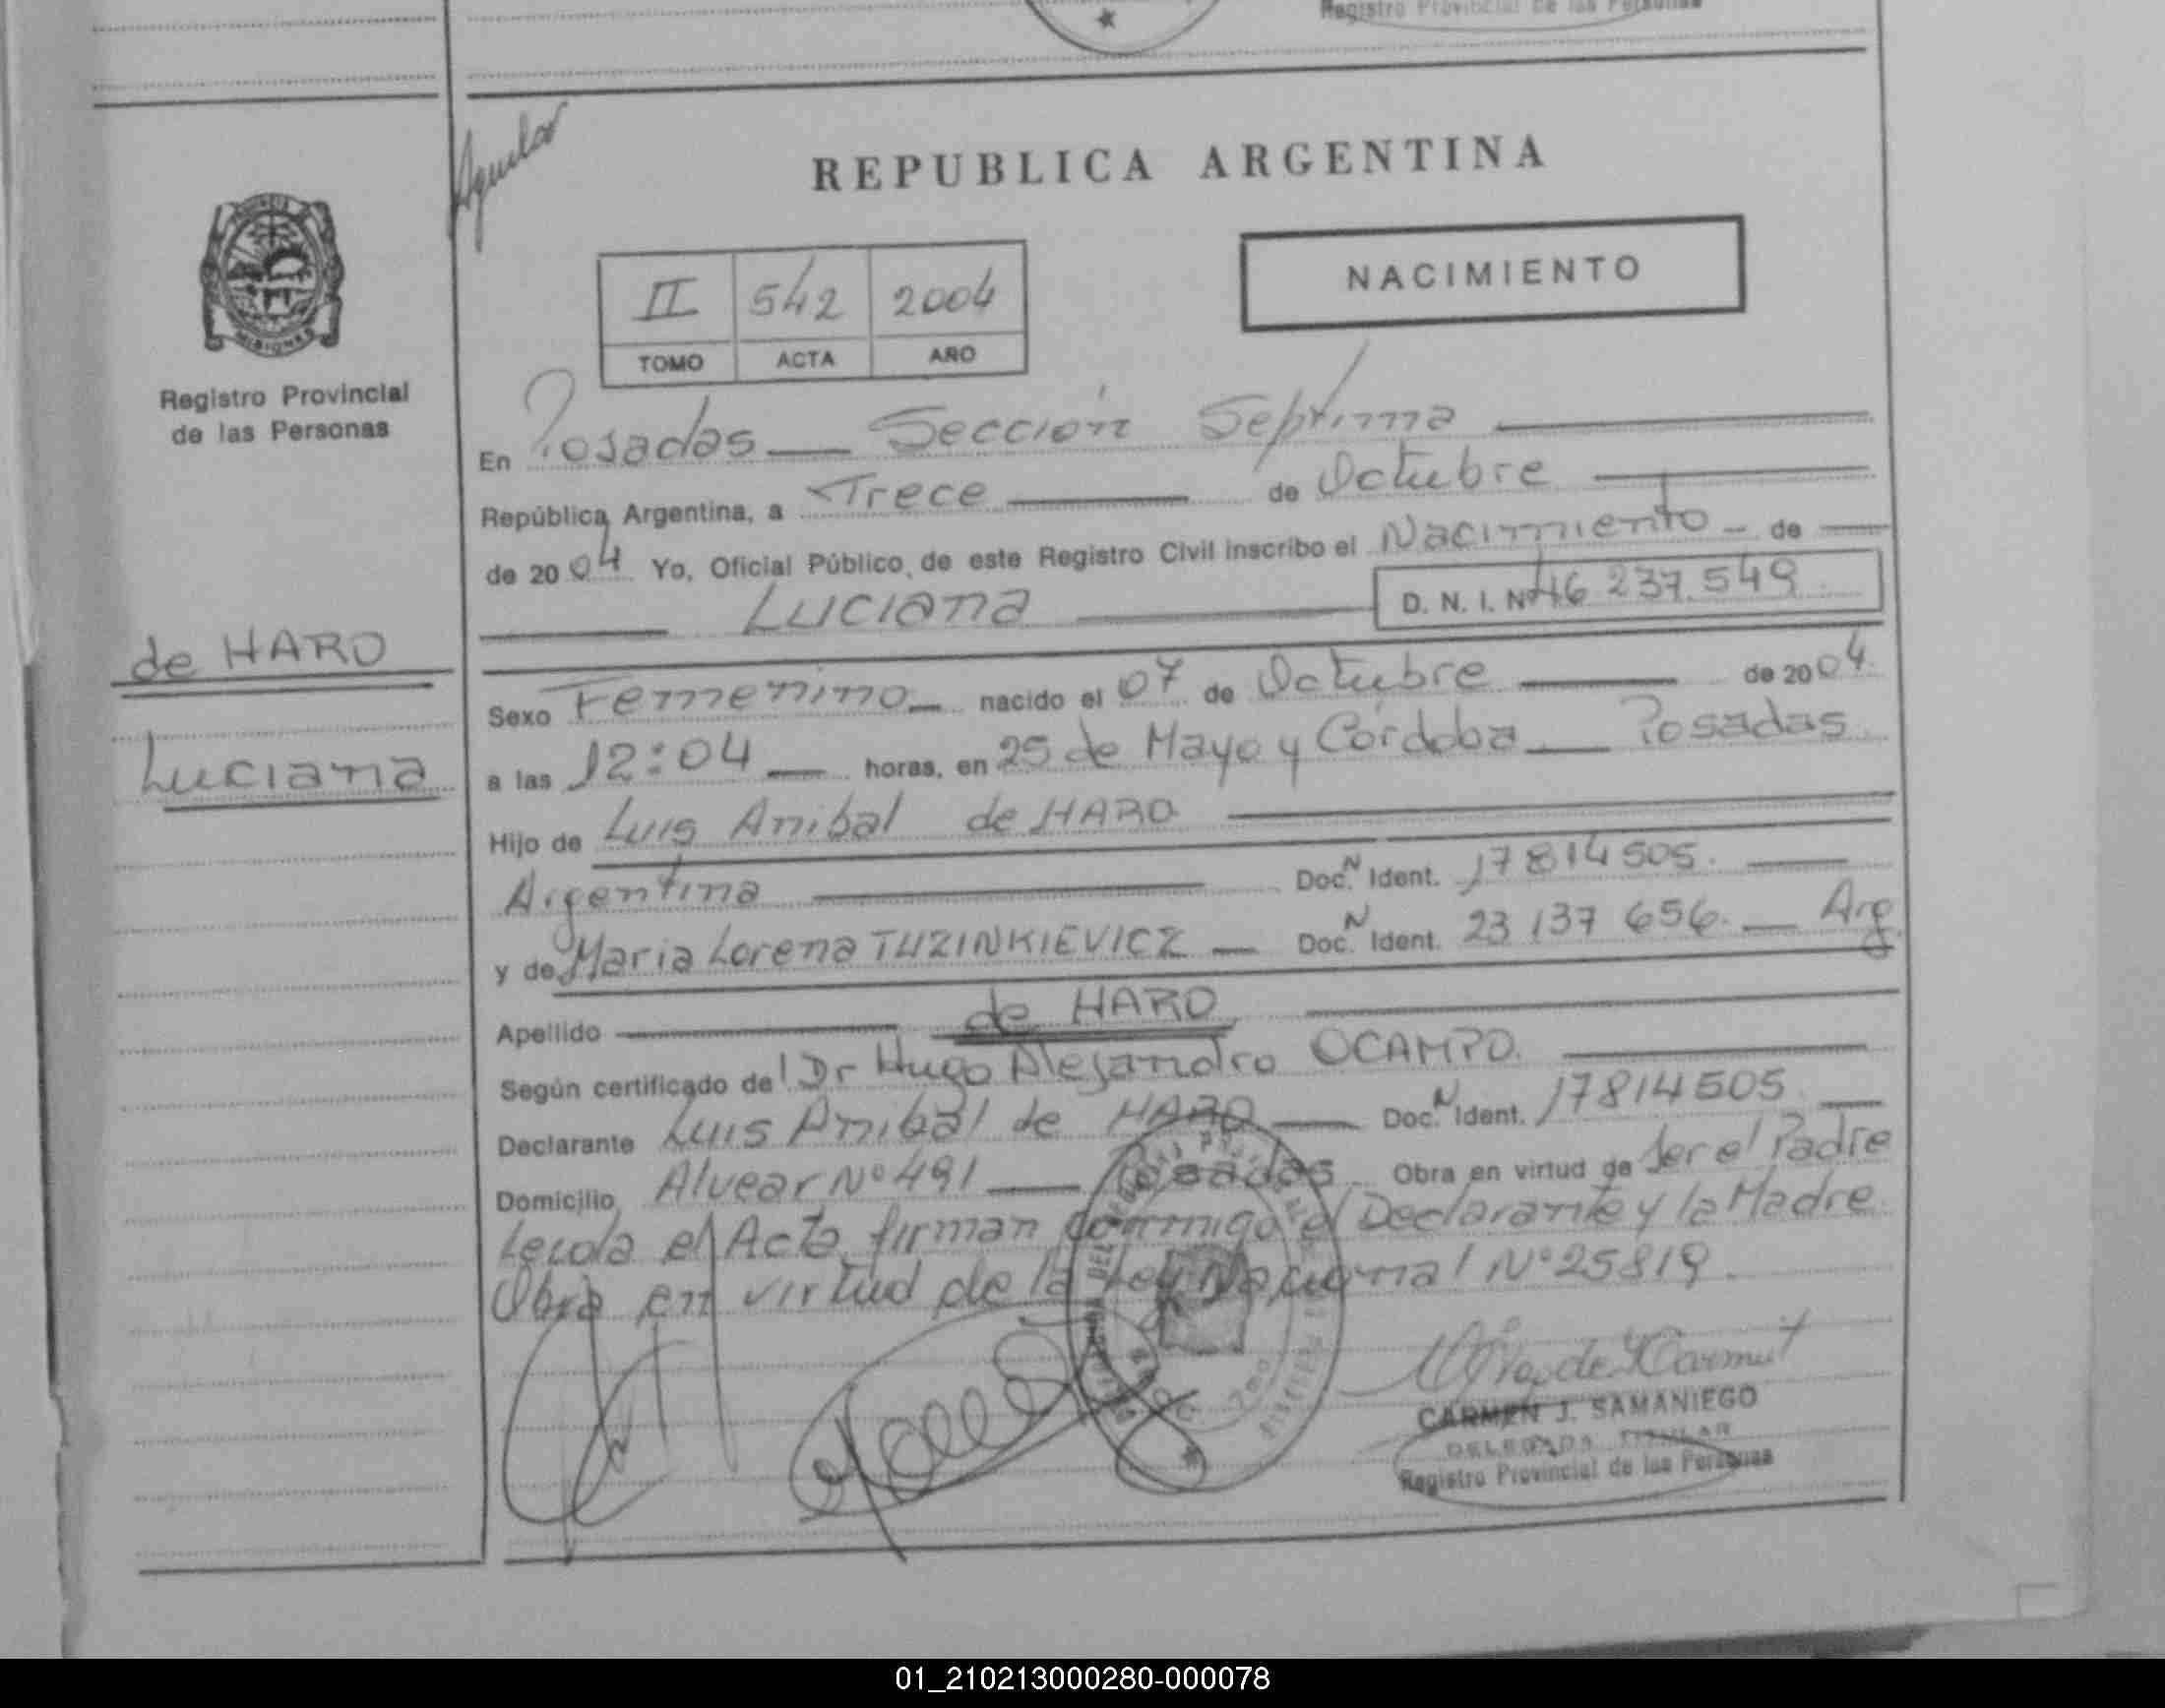 Registro Provincial de las Personas
Aguilar
REPUBLICA ARGENTINA
NACIMIENTO
II 542 2004
TOMO ACTA AÑO
PROVINCIA
MISIONES
Registro Provincial
de las Personas
de HARO
Luciana
En Posadas — Sección Septima
República Argentina, a Trece de Octubre
de 2004 Yo, Oficial Público de este Registro Civil inscribo el Nacimiento - de
Luciana D. N. I. Nº 46 237.549
Sexo Femenino nacido el 07 de Octubre de 2004.
a las 12:04 horas, en 25 de Mayo y Córdoba — Posadas.
Hijo de Luis Anibal de HARO
Argentina Doc. N Ident. 17814505.
y de Maria Lorena TUZINKIEVICZ — Doc. N Ident. 23 137 656. — Arg.
Apellido de HARO
Según certificado del Dr Hugo Alejandro OCAMPO.
Declarante Luis Anibal de HARO — Doc. N Ident. 17814505
Domicilio Alvear Nº 491 — Posadas. Obra en virtud de ser el Padre
Leida el Acta firman conmigo el Declarante y la Madre.
Obra en virtud de la Ley Nacional Nº 25819.
CARMEN J. SAMANIEGO
DELEGADA TITULAR
Registro Provincial de las Personas
01_210213000280-000078